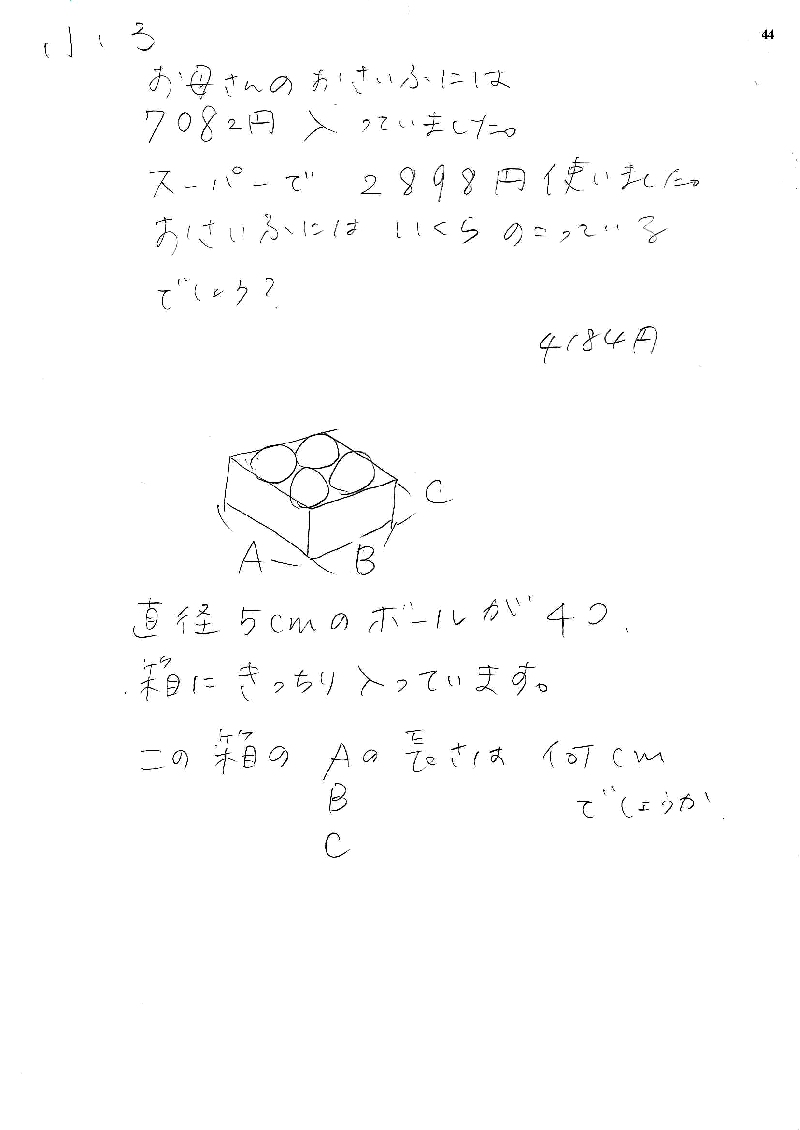 44
小3
お母さんのおさいふには
7082円入っていました。
スーパーで 2898円使いました。
おさいふにはいくらのこっている
でしょう?
4184円
C
A B
直径5cmのボールが4つ、
箱にきっちり入っています。
この箱のAの長さは何cm
B でしょうか
C